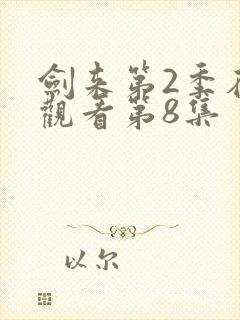 劍来第2季在
觀看第8集
以尔